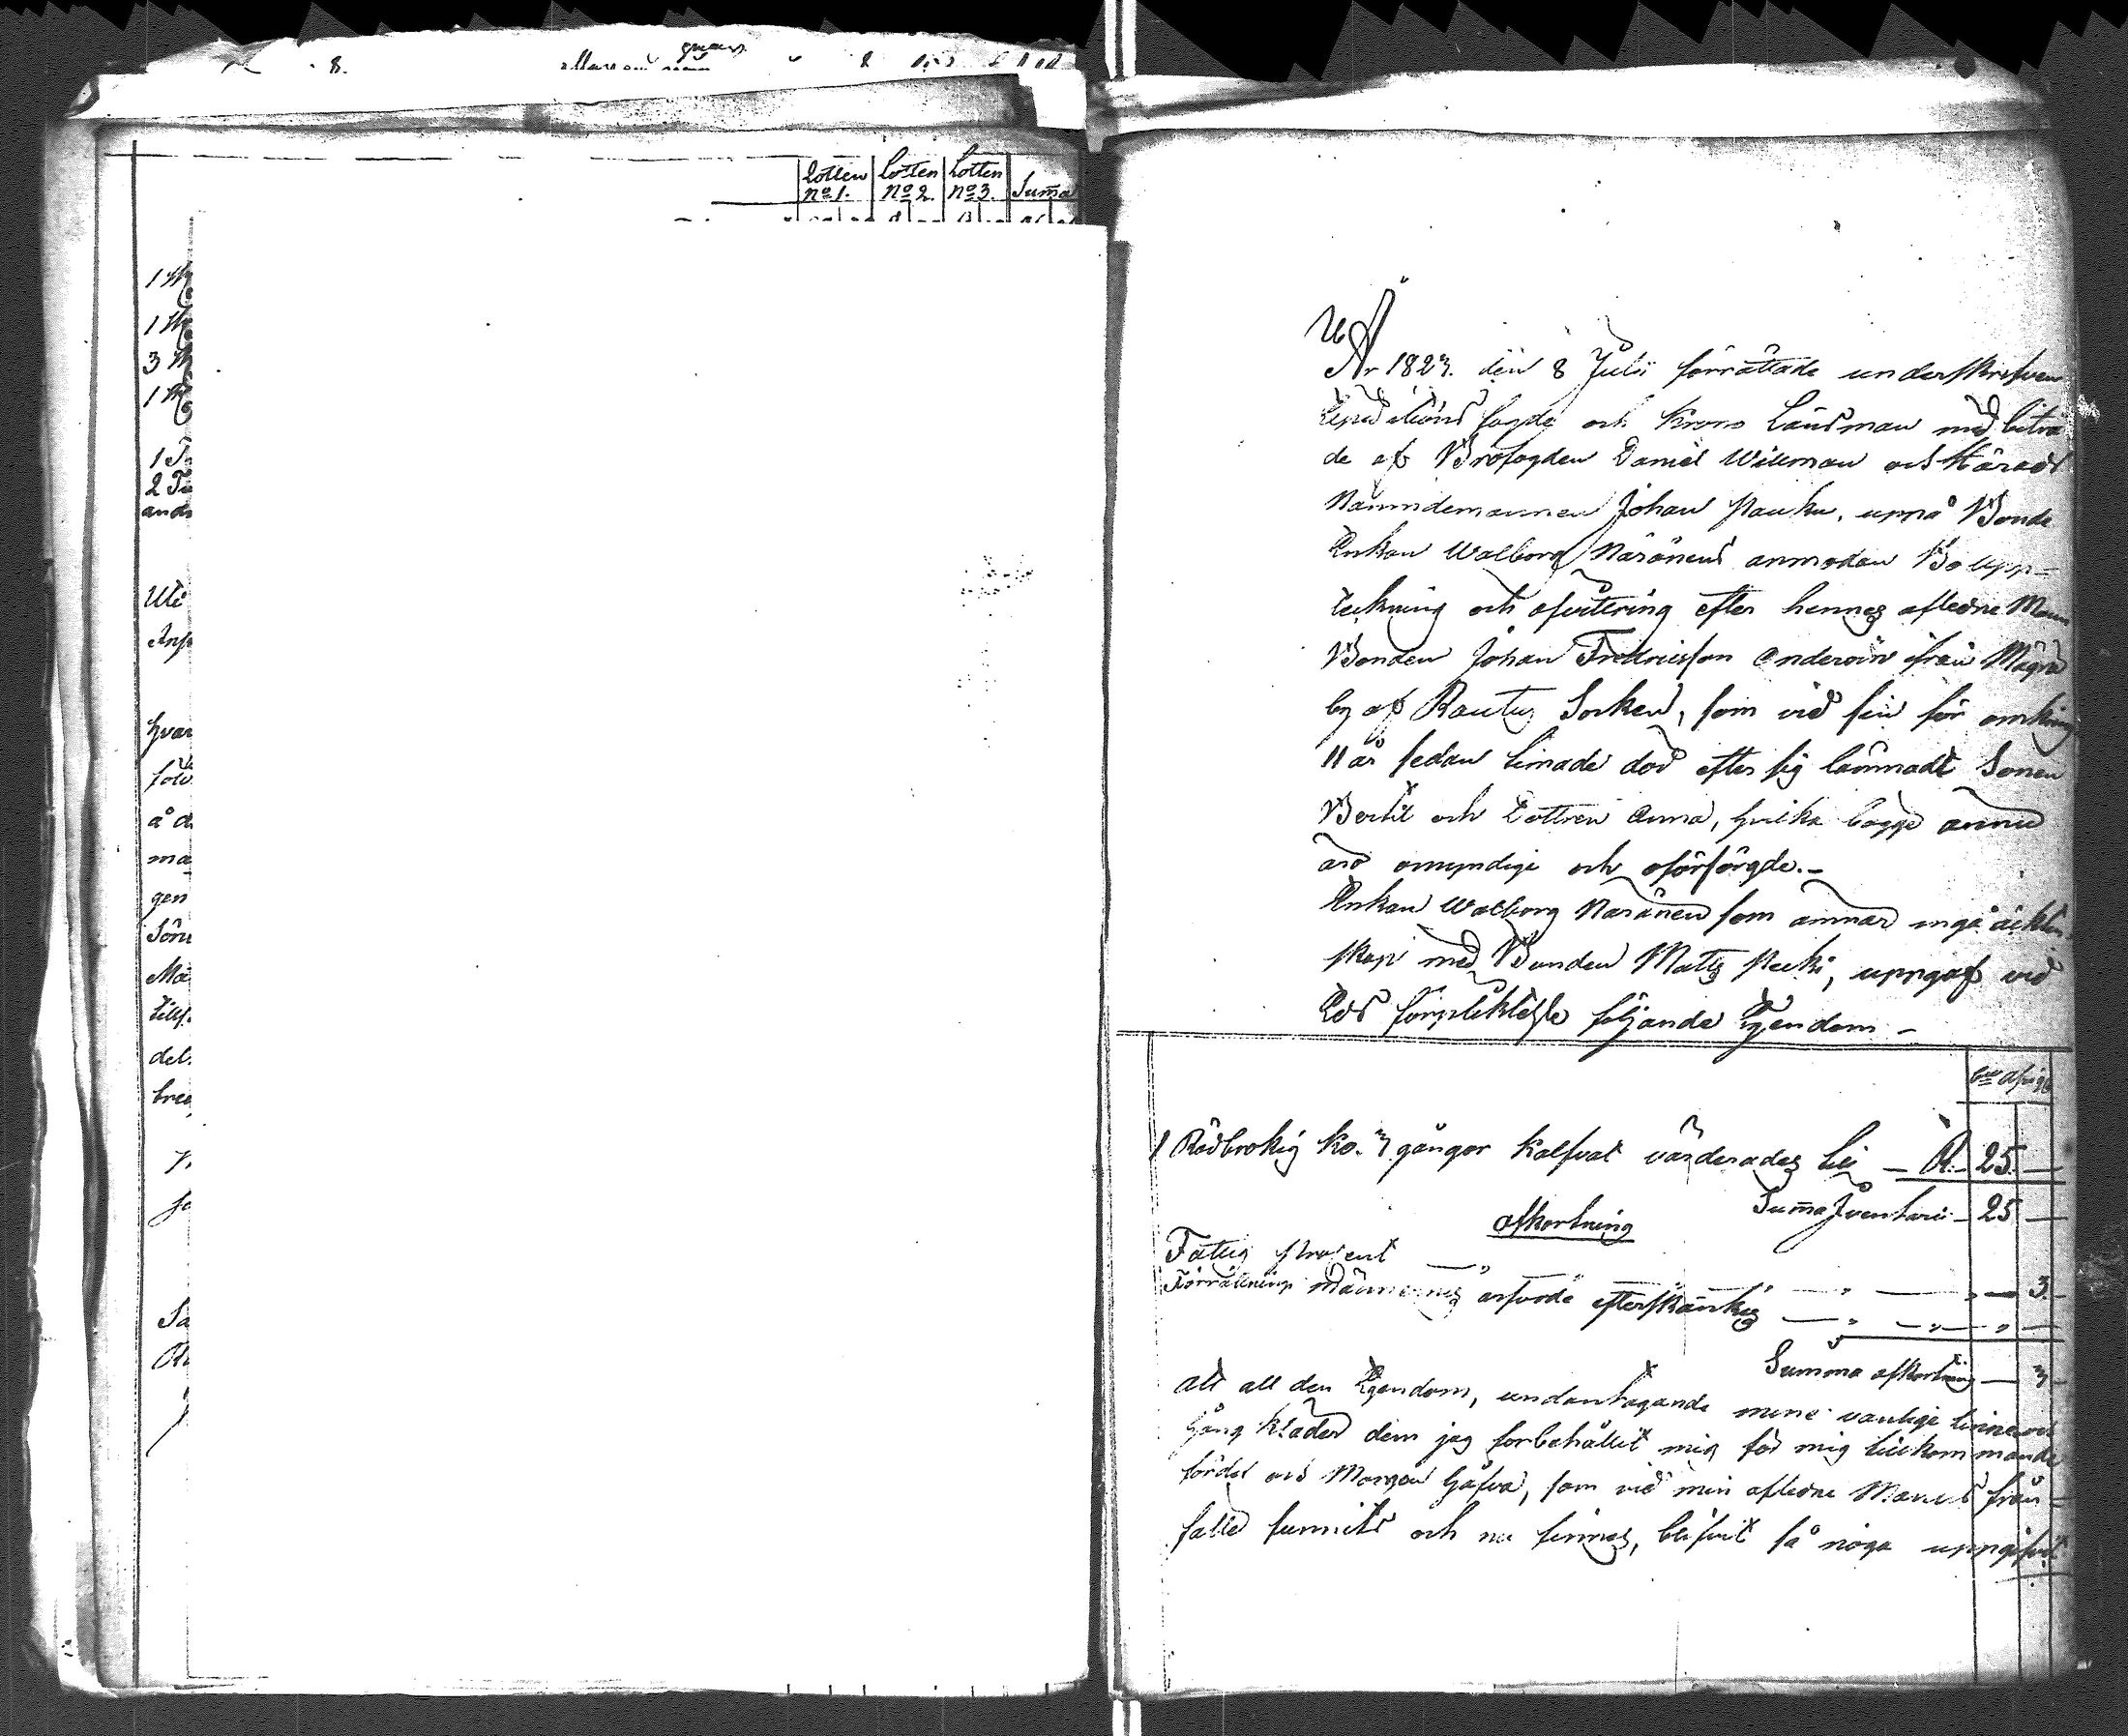 8.
Lotten Lotten Lotten
No 1. No 2. No 3. Suma
1
1
3
1
1
2
ands
Ut
hvar
å d
ma
gen
Sön
del.
År 1823. den 8 Julii förrättade underskrefven
Expeditions fogde och Krono Länsman med biträ
de af Brofogden Daniel Willman och Härads
Nämndemannen Johan Pauku, uppå Bonde
Enkan Walborg Näränens anmodan Boupp-
teckning och afvittring efter hennes afledne Man
Bonden Johan Fredricsson Onderoin ifrån Mägrä
by af Rautus Socken, som vid sin för omkring
11 år sedan timade död efter sig lämnadt Sonen
Bertil och Dottren Anna, hvilka bägge ännu
äro omyndige och oförsörgde.-
Enkan Walborg Näränen som ämnar ingå äkten
skap med Bonden Matts Pecki, uppgaf vid
Eds förpliktelse följande Egendom -
1 Rödbrokig ko. 3 gångor kalfvat värderades till - R. 25. -
Suma Inventarii - 25 -
Afkortning
Fattig procent - " - " - 3.
Förrättnings männernes arfvode efterskänkes - " - " - " -
Summa afkortning - 3 -
Att all den Egendom, undantagande mine vanlige linne och
gång kläder dem jag förbehållit mig för mig tillkommande
fördel och Morgon Gåfva, som vid min afledne Mans från-
fälle funnits och nu finnes, blifvit så noga uppgifvit